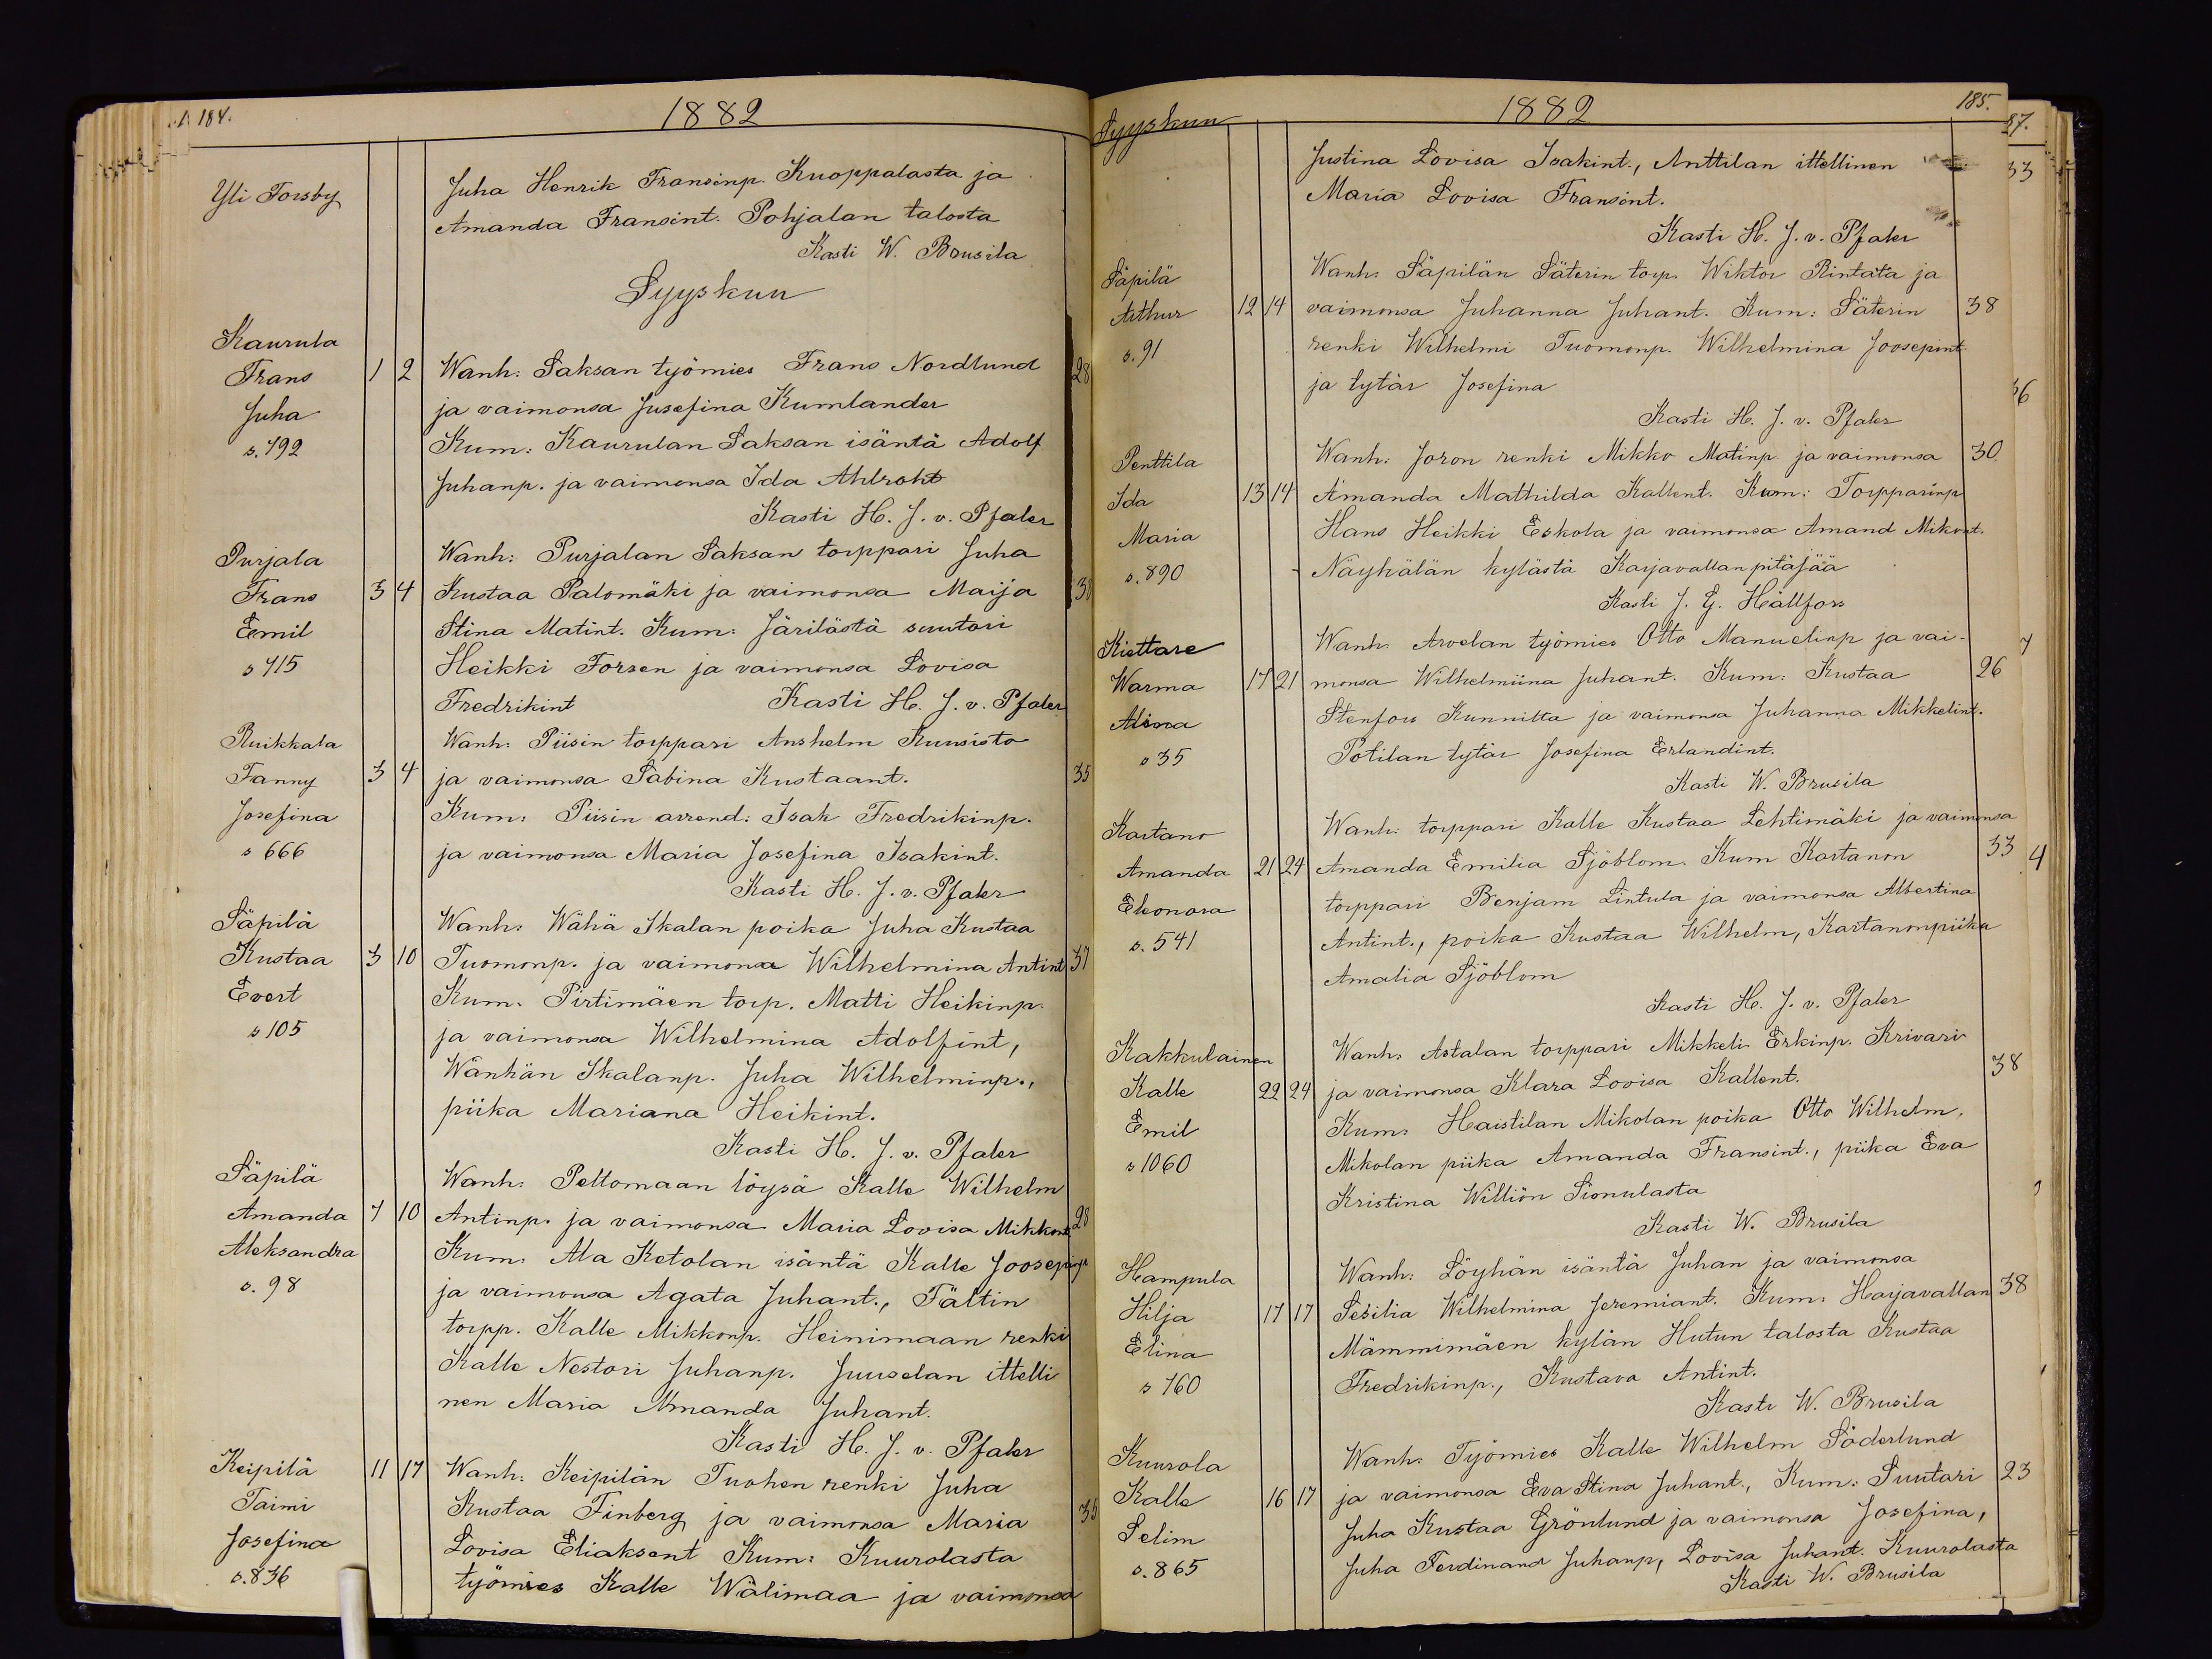 184.
1882
Yli Torsby
Juha Henrik Fransinp. Kuoppalasta ja
Amanda Fransint. Pohjalan talosta
Kasti W. Brusila
Syyskuu
Kaurula
Frans 1 2 Wanh: Saksan työmies Frans Nordlund 28
Juha ja vaimonsa Jusefina Kumlander
s. 792 Kum: Kaurulan Saksan isäntä Adolf
Juhanp. ja vaimonsa Ida Ahlroht
Kasti H. J. v. Pfaler
Purjala Wanh: Purjalan Saksan torppari Juha
Frans 3 4 Kustaa Palomäki ja vaimonsa Maija
Emil Stina Matint. Kum: Järilästä suutari
s 715 Heikki Forsen ja vaimonsa Lovisa
Fredrikint Kasti H. J. v. Pfaler
Ruikkala Wanh: Piisin torppari Anshelm Kuusisto
Fanny 3 4 ja vaimonsa Sabina Kustaant. 35
Josefina Kum: Piisin arrend: Isak Fredrikinp.
s 666 ja vaimonsa Maria Josefina Isakint.
Kasti H. J. v. Pfaler
Säpilä Wanh: Wähä Ikalan poika Juha Kustaa
Kustaa 3 10 Tuomonp. ja vaimonsa Wilhelmina Antint 37
Evert Kum: Pirtimäen torp. Matti Heikinp.
s 105 ja vaimonsa Wilhelmina Adolfint,
Wanhän Ikalanp. Juha Wilhelminp.,
piika Mariana Heikint.
Kasti H. J. v. Pfaler
Säpilä Wanh: Peltomaan löysä Kalle Wilhelm
Amanda 7 10 Antinp. ja vaimonsa Maria Lovisa Mikkont 28
Aleksandra Kum: Ala Ketolan isäntä Kalle Joosepinp
s. 98 ja vaimonsa Agata Juhant., Fältin
torpp. Kalle Mikkonp. Heinimaan renki
Kalle Nestori Juhanp. Juuselan ittelli
nen Maria Amanda Juhant.
Kasti H. J. v. Pfaler
Keipilä 11 17 Wanh: Keipilän Tuohen renki Juha
Taimi Kustaa Finberg ja vaimonsa Maria
Josefina Lovisa Eliaksent Kum: Kuurolasta
s. 836 työmies Kalle Wälimaa ja vaimonsa
Syyskuu
1882
185.
Justina Lovisa Isakint., Anttilan ittellinen
Maria Lovisa Fransint.
Kasti H. J. v. Pfaler
Säpilä Wanh: Säpilän Säterin torp. Wiktor Rintata ja
Arthur 12 14 vaimonsa Juhanna Juhant. Kum: Säterin 38
s. 91 renki Wilhelmi Tuomonp. Wilhelmina Joosepint.
ja tytär Josefina
Kasti H. J. v. Pfaler
Penttila Wanh: Joron renki Mikko Matinp. ja vaimonsa 30
Ida 13 14 Amanda Mathilda Kallent. Kum: Torpparinp
Maria Hans Heikki Eskola ja vaimonsa Amand Mikont.
s. 890 Näyhälän kylästä Karjavallan pitäjää
Kasti J. G. Hällfors
Kiettare Wanh: Arvelan työmies Otto Manuelinp ja vai-
Warma 17 21 monsa Wilhelmiina Juhant. Kum: Kustaa 26
Stenfors Kunnilta ja vaimonsa Juhanna Mikkelint.
s 35 Potilan tytär Josefina Erlandint.
Kasti W. Brusila
Kartano Wanh: torppari Kalle Kustaa Lehtimäki ja vaimonsa
Amanda 21 24 Amanda Emilia Sjöblom. Kum Kartanon 33
Eleonora torppari Benjam Lintula ja vaimonsa Albertina
s. 541 Antint., poika Kustaa Wilhelm, Kartanonpiika
Amalia Sjöblom
Kasti H. J. v. Pfaler
Kakkulainen Wanh: Astalan torppari Mikkeli Erkinp. Krivari
Kalle 22 24 ja vaimonsa Klara Lovisa Kallent. 38
Emil Kum: Haistilan Mikolan poika Otto Wilhelm,
s 1060 Mikolan piika Amanda Fransint., piika Eva
Kristina Williön Sionulasta
Kasti W. Brusila
Hampula Wanh: Löyhän isäntä Juhan ja vaimonsa
Hilja 17 17 Sesilia Wilhelmina Jeremiant. Kum: Harjavallan 38
Elina Mämmimäen kylän Hutun talosta Kustaa
s 760 Fredrikinp., Kustava Antint.
Kasti W. Brusila
Kuurola Wanh: Työmies Kalle Wilhelm Söderlund
Kalle 16 17 ja vaimonsa Eva Stina Juhant., Kum: Suutari 23
Selim Juha Kustaa Grönlund ja vaimonsa Josefina,
s. 865 Juha Ferdinand Juhanp, Lovisa Juhant. Kuurolasta
Kasti W. Brusila